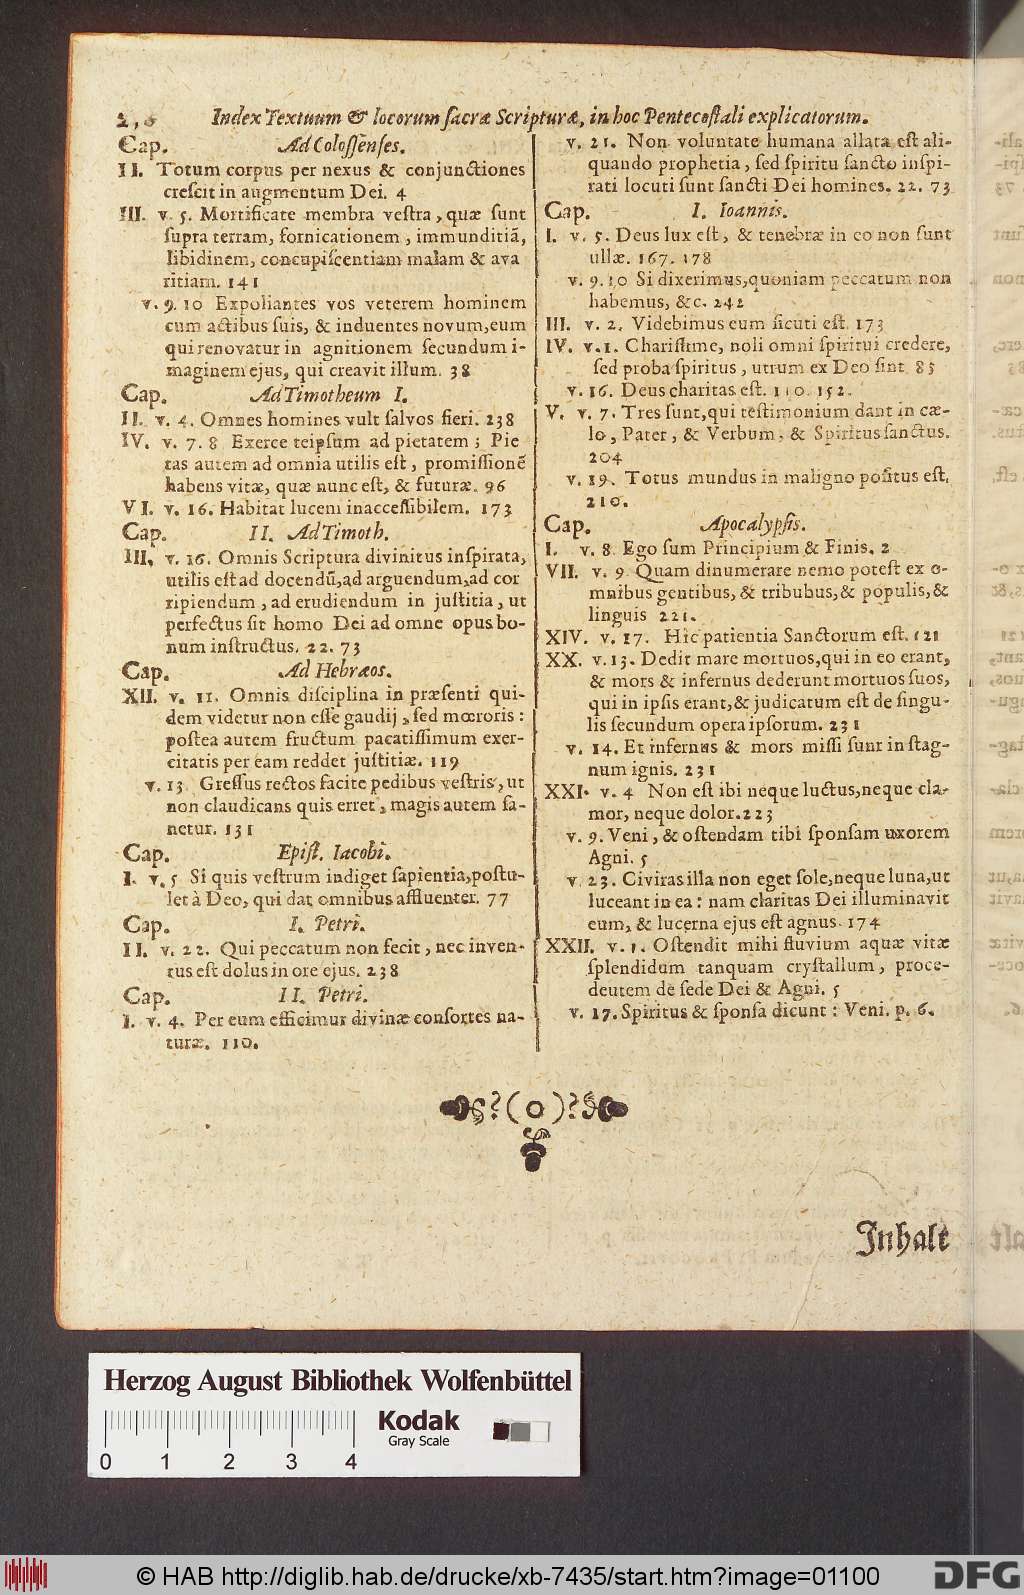 Index Textuum & locorum sacræ Scripturæ, in hoc Pentecostali explicatorum.
Cap. Ad Colossenses.
II. Totum corpus per nexus & conjunctiones
crescit in augmentum Dei. 4
III. v. 5. Mortificate membra vestra, quæ sunt
supra terram, fornicationem, immunditiā,
libidinem, concupiscentiam malam & ava
ritiam. 141
v. 9. 10 Expoliantes vos veterem hominem
cum actibus suis, & induentes novum, eum
qui renovatur in agnitionem secundum i-
maginem ejus, qui creavit illum. 38
Cap. Ad Timotheum I.
II. v. 4. Omnes homines vult salvos fieri. 238
IV. v. 7. 8 Exerce teipsum ad pietatem; Pie
tas autem ad omnia utilis est, promissionē
habens vitæ, quæ nunc est, & futuræ. 96
VI. v. 16. Habitat lucem inaccessibilem. 173
Cap. II. Ad Timoth.
III. v. 16. Omnis Scriptura divinitus inspirata,
utilis est ad docendū, ad arguendum, ad cor
ripiendum, ad erudiendum in justitia, ut
perfectus sit homo Dei ad omne opus bo-
num instructus. 22. 73
Cap. Ad Hebræos.
XII. v. 11. Omnis disciplina in præsenti qui-
dem videtur non esse gaudij, sed mœroris:
postea autem fructum pacatissimum exer-
citatis per eam reddet justitiæ. 119
v. 13. Gressus rectos facite pedibus vestris, ut
non claudicans quis erret, magis autem sa-
netur. 131
Cap. Epist. Iacobi.
I. v. 5 Si quis vestrum indiget sapientia, postu-
let à Deo, qui dat omnibus affluenter. 77
Cap. I. Petri.
II. v. 22. Qui peccatum non fecit, nec inven-
tus est dolus in ore ejus. 238
Cap. II. Petri.
I. v. 4. Per eum efficimur divinæ consortes na-
turæ. 110.
v. 21. Non voluntate humana allata est ali-
quando prophetia, sed spiritu sancto inspi-
rati locuti sunt sancti Dei homines. 22. 73
Cap. I. Ioannis.
I. v. 5. Deus lux est, & tenebræ in eo non sunt
ullæ. 167. 178
v. 9. 10 Si dixerimus, quoniam peccatum non
habemus, &c. 242
III. v. 2. Videbimus eum sicuti est. 173
IV. v. 1. Charissime, noli omni spiritui credere,
sed proba spiritus, utrum ex Deo sint. 83
v. 16. Deus charitas est. 110. 152.
V. v. 7. Tres sunt, qui testimonium dant in cæ-
lo, Pater, & Verbum, & Spiritus sanctus.
204
v. 19. Totus mundus in maligno positus est.
210.
Cap. Apocalypsis.
I. v. 8. Ego sum Principium & Finis. 2
VII. v. 9. Quam dinumerare nemo potest ex o-
mnibus gentibus, & tribubus, & populis, &
linguis 221.
XIV. v. 17. Hic patientia Sanctorum est. 121
XX. v. 13. Dedit mare mortuos, qui in eo erant,
& mors & infernus dederunt mortuos suos,
qui in ipsis erant, & judicatum est de singu-
lis secundum opera ipsorum. 231
v. 14. Et infernus & mors missi sunt in stag-
num ignis. 231
XXI. v. 4 Non est ibi neque luctus, neque cla-
mor, neque dolor. 223
v. 9. Veni, & ostendam tibi sponsam uxorem
Agni. 5
v. 23. Civitas illa non eget sole, neque luna, ut
luceant in ea: nam claritas Dei illuminavit
eum, & lucerna ejus est agnus. 174
XXII. v. 1. Ostendit mihi fluvium aquæ vitæ
splendidum tanquam crystallum, proce-
deutem de sede Dei & Agni. 5
v. 17. Spiritus & sponsa dicunt: Veni. p. 6.
Inhalt
Herzog August Bibliothek Wolfenbüttel
Kodak
Gray Scale
0 1 2 3 4
© HAB http://diglib.hab.de/drucke/xb-7435/start.htm?image=01100
DFG